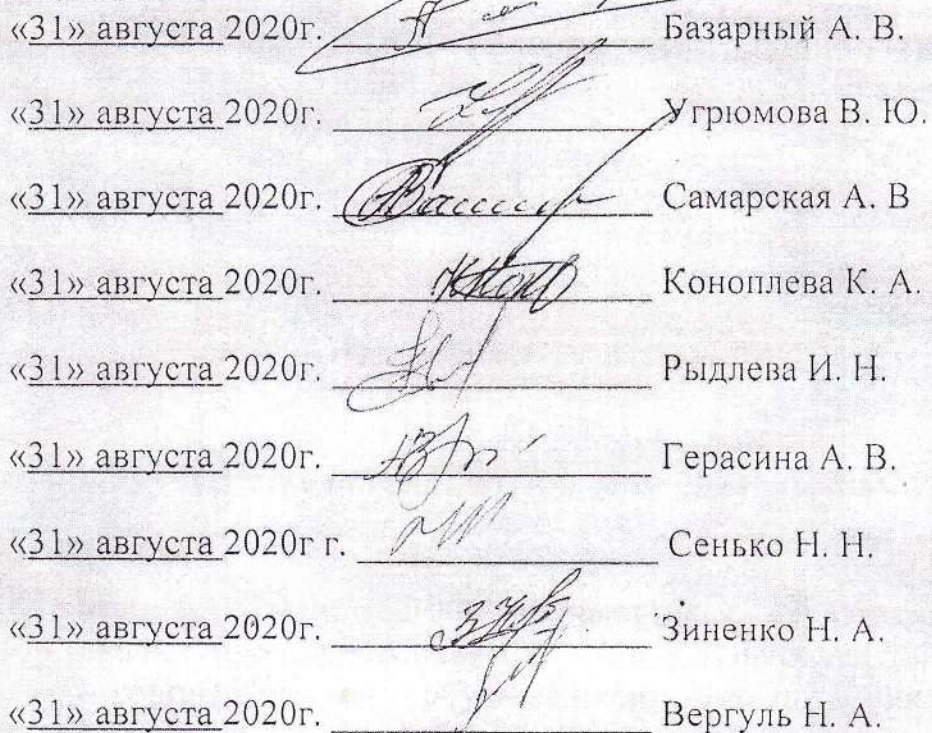 «31» августа 2020г. Базарный А. В.
«31» августа 2020г. Угрюмова В. Ю.
«31» августа 2020г. Самарская А. В
«31» августа 2020г. Коноплева К. А.
«31» августа 2020г. Рыдлева И. Н.
«31» августа 2020г. Герасина А. В.
«31» августа 2020г г. Сенько Н. Н.
«31» августа 2020г. Зиненко Н. А.
«31» августа 2020г. Вергуль Н. А.